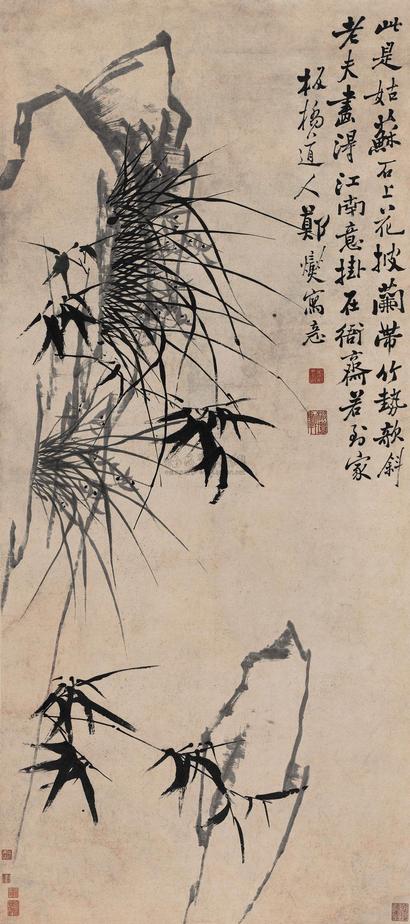 此是姑蘇石上花披蘭帶竹勢欹斜
老夫畫得江南意掛在衙齋若到家
板橋道人鄭燮寫意